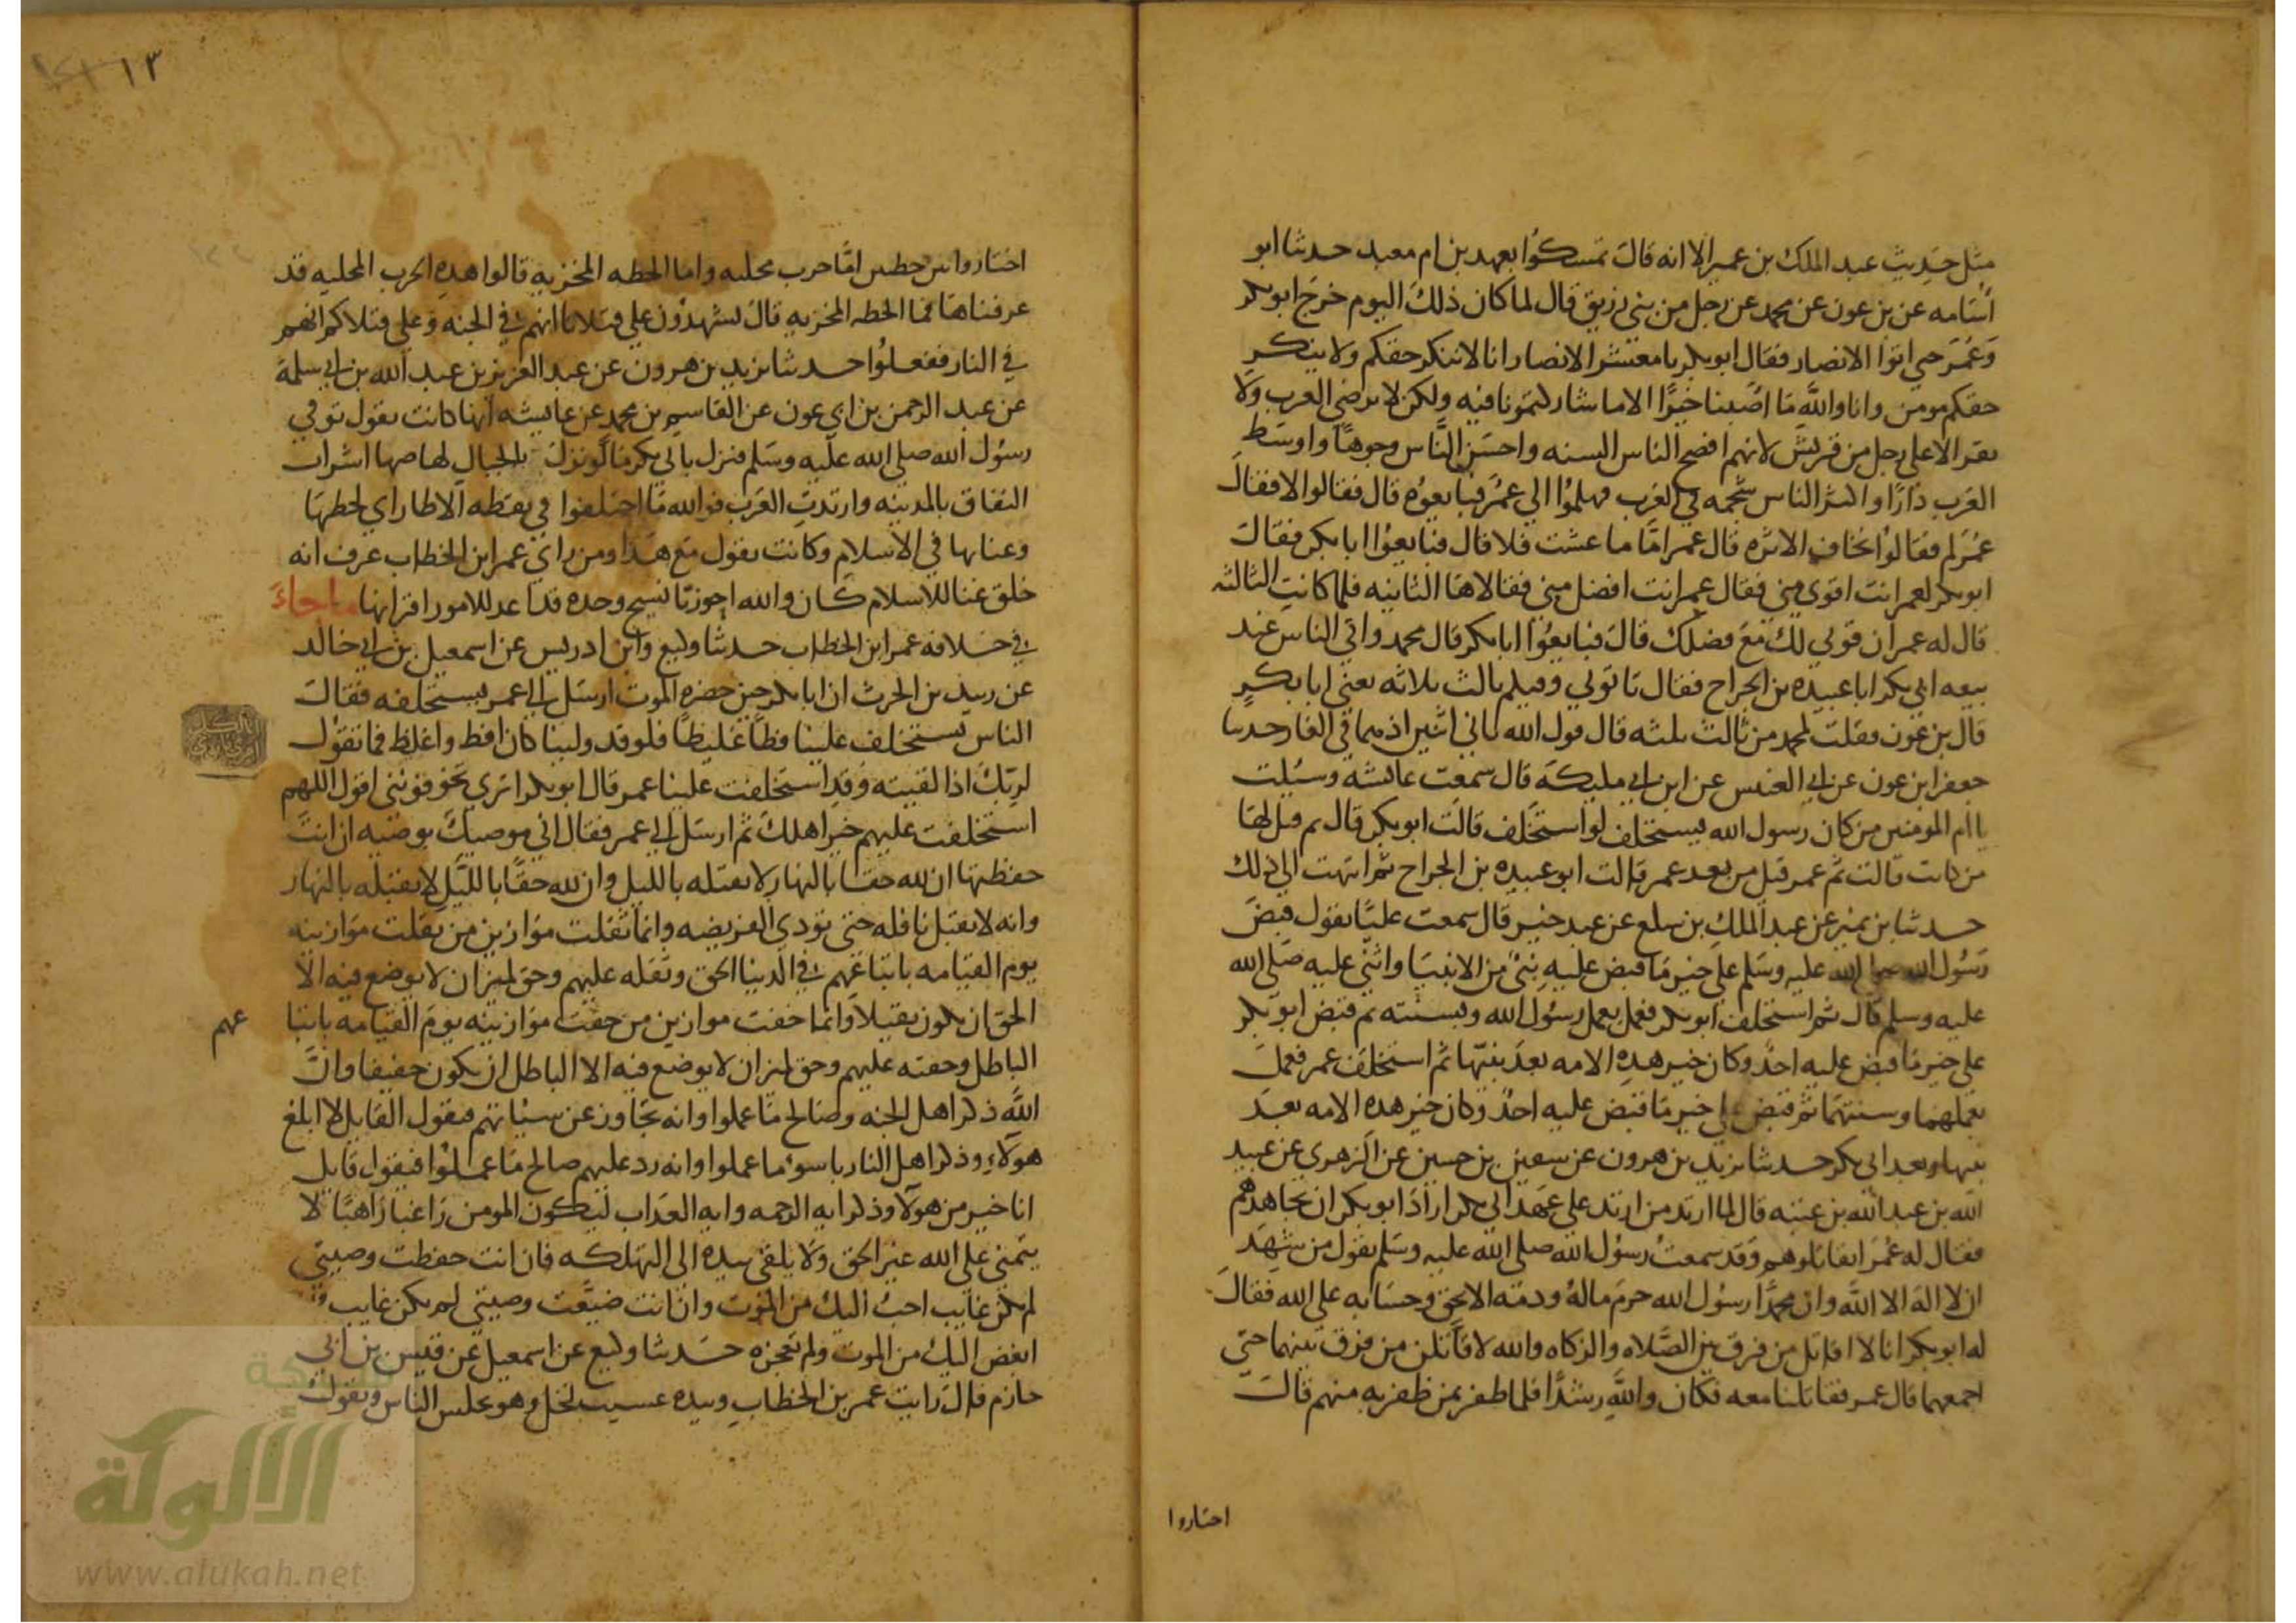 مثل حديث عبد الملك بن عمير الا انه قال تمسكوا بعهد بن ام معبد حدثنا ابو
اسامه عن بن عون عن محمد عن رجل من بني زريق قال لما كان ذلك اليوم خرج ابو بكر
وعمر حتى اتوا الانصار فقال ابو بكر يا معشر الانصار انا لا ننكر حقكم ولا ينكر
حقكم مومن وانا والله ما اصبنا خيرا الا ما شاركتمونا فيه ولكن لا ترضى العرب ولا
تقر الا على رجل من قريش لانهم افصح الناس السنه واحسن الناس وجوها واوسط
العرب دارا واكثر الناس سجمه في العرب فهلموا الى عمر فبايعوه قال فقالوا لا فقال
عمر لم فقالوا نخاف الاثره قال عمر اما ما عشت فلا قال فبايعوا ابا بكر فقال
ابو بكر لعمر انت اقوى مني فقال عمر انت افضل مني فقالاها الثانيه فلما كانت الثالثه
قال له عمر ان قوتي لك مع فضلك قال فبايعوا ابا بكر قال محمد واتى الناس عند
بيعه ابي بكر ابا عبيده بن الجراح فقال تاتوني وفيكم ثالث ثلاثه يعني ابا بكر
قال بن عون فقلت لمحمد من ثالث ثلثه قال قول الله ثاني اثنين اذ هما في الغار حدثنا
جعفر ابن عون عن ابي العنبس عن ابن ابي مليكه قال سمعت عائشه وسئلت
يا ام المومنين من كان رسول الله يستخلف لو استخلف قالت ابو بكر قال ثم قيل لها
من كانت قالت ثم عمر قيل من بعد عمر قالت ابو عبيده بن الجراح ثم انتهت الى ذلك
حدثنا بن نمير عن عبد الملك بن سلع عن عبد خير قال سمعت عليا يقول قبض
رسول الله صلى الله عليه وسلم على خير ما قبض عليه نبي من الانبيا واثني عليه صلى الله
عليه وسلم قال ثم استخلف ابو بكر فعمل بعمل رسول الله وبسنته ثم قبض ابو بكر
على خير ما قبض عليه احد وكان خير هذه الامه بعد نبيها ثم استخلف عمر فعمل
بعملهما وسنتهما ثم قبض على خير ما قبض عليه احد وكان خير هذه الامه بعد
نبيها وبعد ابي بكر حدثنا يزيد بن هرون عن سفين بن حسين عن الزهري عن عبيد
الله بن عبد الله بن عتبه قال لما ارتد من ارتد على عهد ابي بكر اراد ابو بكر ان يجاهدهم
فقال له عمر اتقاتلوهم وقد سمعت رسول الله صلى الله عليه وسلم يقول من شهد
ان لا اله الا الله وان محمدا رسول الله حرم ماله ودمه الا بحق وحسابه على الله فقال
له ابو بكر انا لا اقاتل من فرق بين الصلاه والزكاه والله لاقاتلن من فرق بينهما حتى
اجمعهما قال عمر فقاتلنا معه فكان والله رشدا فلما ظفر بمن ظفر به منهم قال
احتاروا
١٣
اختاروا بين خطتين اما حرب مجليه واما الخطه المخزيه قالوا هذه الحرب المجليه قد
عرفناها فما الخطه المخزيه قال تشهدون على قتلانا انهم في الجنه وعلى قتلاكم انهم
في النار ففعلوا حدثنا يزيد بن هرون عن عبد العزيز بن عبد الله بن ابي سلمة
عن عبد الرحمن بن ابي عون عن القاسم بن محمد عن عايشه انها كانت تقول توفي
رسول الله صلى الله عليه وسلم فنزل بابي بكر ما لو نزل بالجبال لهاضها اشراب
النفاق بالمدينه وارتدت العرب فوالله ما اختلفوا في نقطه الا طار ابي لحظها
وعنايها في الاسلام وكانت تقول مع هذا ومن راي عمر ابن الخطاب عرف انه
خلق غنا للاسلام كان والله احوزيا نسيج وحده قد اعد للامور اقرانها ما جاء
في خلافه عمر ابن الخطاب حدثنا وكيع وابن ادريس عن اسمعيل بن ابي خالد
عن زبيد بن الحرث ان ابا بكر حين حضره الموت ارسل الى عمر يستخلفه فقال
الناس تستخلف علينا فظا غليظا فلو قد ولينا كان افظ واغلظ فما تقول
لربك اذا لقيته وقد استخلفت علينا عمر قال ابو بكر ابربي تخوفونني اقول اللهم
استخلفت عليهم خير اهلك ثم ارسل الى عمر فقال اني موصيك بوصيه ان انت
حفظتها ان لله حقا بالنهار لا يقبله بالليل وان لله حقا بالليل لا يقبله بالنهار
وانه لا يقبل نافله حتى تودي الفريضه وانما ثقلت موازين من ثقلت موازينه
يوم القيامه باتباعهم في الدنيا الحق وثقله عليهم وحق لميزان لا يوضع فيه الا
الحق ان يكون ثقيلا وانما خفت موازين من خفت موازينه يوم القيامه باتبا
عهم
الباطل وخفته عليهم وحق لميزان لا يوضع فيه الا الباطل ان يكون خفيفا وان
الله ذكر اهل الجنه وصالح ما عملوا وانه تجاوز عن سيئاتهم فيقول القايل لا ابلغ
هولاء وذكر اهل النار باسوء ما عملوا وانه رد عليهم صالح ما عملوا فيقول قايل
انا خير من هولا وذكر ايه الرحمه وايه العذاب ليكون المومن راغبا راهبا لا
يتمنى على الله غير الحق ولا يلقي بيده الى التهلكه فان انت حفظت وصيتي
لم يكن غايب احب اليك من الموت وان انت ضيعت وصيتي لم يكن غايب
ابغض اليك من الموت ولم تعجزه حدثنا وكيع عن اسمعيل عن قيس بن ابي
حازم قال رايت عمر بن الخطاب وبيده عسيب نخل وهو يجلس الناس ويقول
شبكة
الألوكة
www.alukah.net